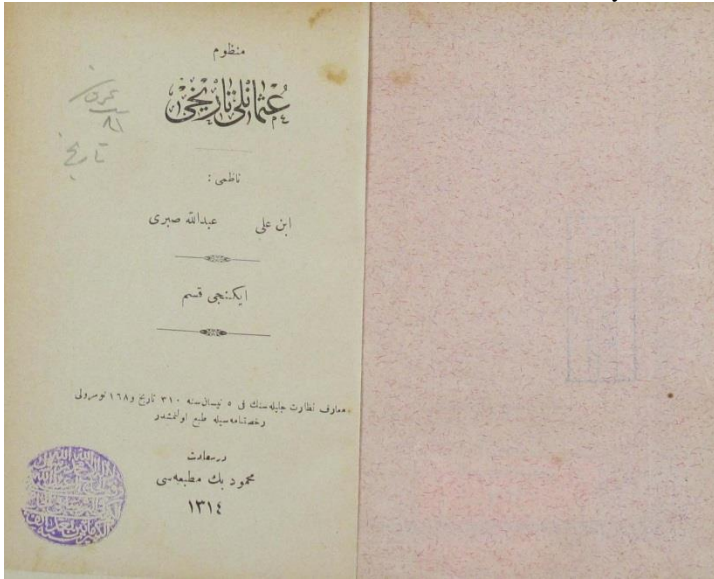 منظوم
عثمانلی تاریخی
ناظمی :
ابن علی عبدالله صبری
ایکنجی قسم
معارف نظارت جلیله‌سنك فی ٥ نیسان سنه ٣١٠ تاریخ و ١٦٨ نومرولی
رخصتنامه‌سیله طبع اولنمشدر
درسعادت
محمود بك مطبعه‌سی
١٣١٤
تاریخ